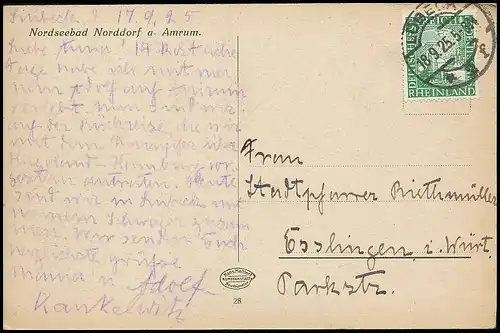 Lübeck, d 17.9.25
Nordseebad Norddorf a. Amrum.
Liebe Anna! 14
Tage habe ich mit mei
nem Adolf auf Amrum
verlebt. Nun sind wir
auf der Rückreise, die wir
mit dem Dampfer über
Helgoland-Hamburg vor
gestern antreten. Heute
sind wir in Lübeck mit
meinem Schwager zusam
men. Wir senden Euch
herzlichste Grüße
Mama u. Adolf
Kankelwitz
DEUTSCHES REICH
RHEINLAND
LÜBECK
18.9.25.5-
Frau
Stadtpfarrer Riethmüller
Esslingen i. Württ.
Parkstr.
28